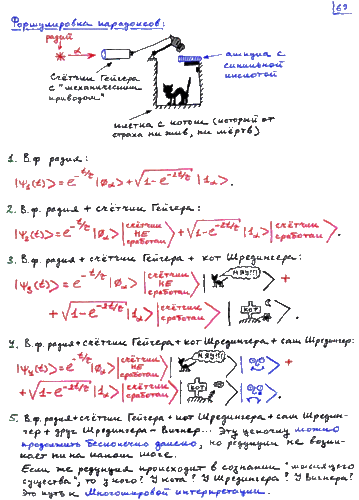 67
Формулировка парадоксов:
радий
α
Счётчик Гейгера
с "механическим
приводом"
ампула с
синильной
кислотой
клетка с котом (который от
страха ни жив, ни мёртв)
1. В.ф. радия:
|Ψ₁(t)> = e^{-t/τ} |0α> + √(1-e^{-2t/τ}) |1α>.
2. В.ф. радия + счётчик Гейгера:
|Ψ₂(t)> = e^{-t/τ} |0α> |счётчик НЕ сработал> + √(1-e^{-2t/τ}) |1α> |счётчик сработал>.
3. В.ф. радия + счётчик Гейгера + кот Шредингера:
|Ψ₃(t)> = e^{-t/τ} |0α> |счётчик НЕ сработал> | МЯУ!!! > +
+ √(1-e^{-2t/τ}) |1α> |счётчик сработал> | КОТ >.
4. В.ф. радия + счётчик Гейгера + кот Шредингера + сам Шредингер:
|Ψ₄(t)> = e^{-t/τ} |0α> |счётчик НЕ сработал> | МЯУ!!! > | > +
+ √(1-e^{-2t/τ}) |1α> |счётчик сработал> | КОТ > | >.
5. В.ф. радия + счётчик Гейгера + кот Шредингера + сам Шредин-
гер + друг Шредингера - Вигнер... Эту цепочку можно
продолжить бесконечно далеко, но редукции не возни-
кает ни на каком шаге.
Если же редукция происходит в сознании "мыслящего
существа", то у кого? У кота? У Шредингера? У Вигнера?
Это путь к Многомировой интерпретации.